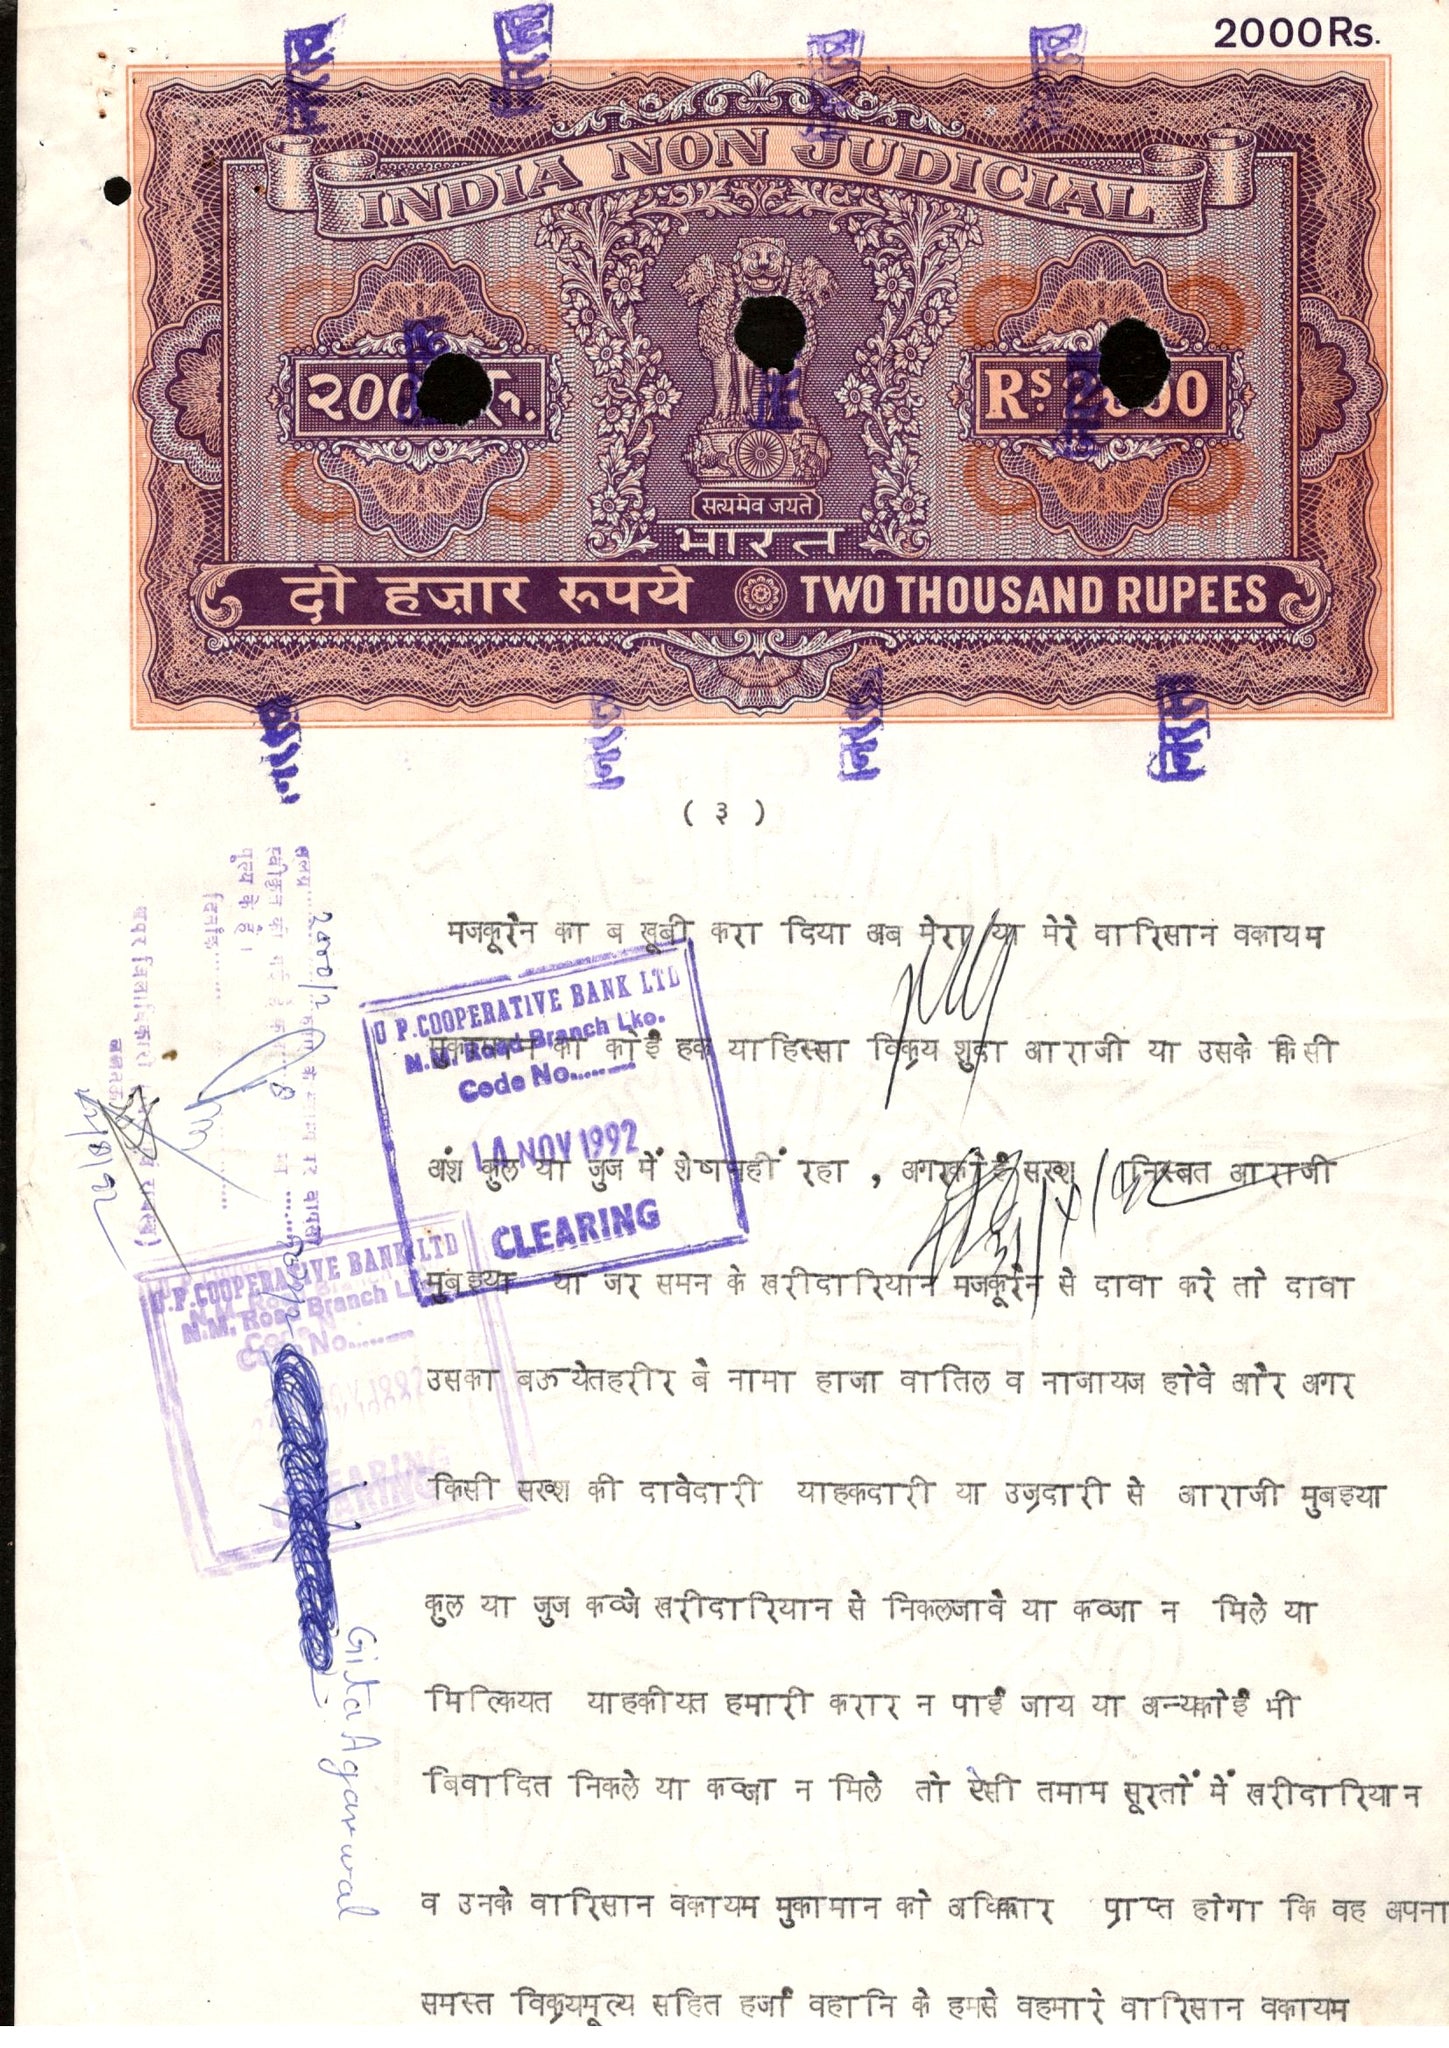 2000Rs.
INDIA NON JUDICIAL
सत्यमेव जयते
भारत
दो हज़ार रुपये TWO THOUSAND RUPEES
( ३ )
मजकूरेन का ब खूबी करा दिया अब मेरा या मेरे वारिसान वकायम
का कोई हक याहिस्सा विक्रय शुदा आराजी या उसके किसी
अंश कुल या जुज में शेषनहीं रहा , अगरकोई सख्श निस्बत आराजी
मुबइया या जर समन के खरीदारियान मजकूरेन से दावा करे तो दावा
उसका बऊयेतहरीर बे नामा हाजा वातिल व नाजायज होवे और अगर
किसी सख्श की दावेदारी याहकदारी या उज्रदारी से आराजी मुबइया
कुल या जुज कब्जे खरीदारियान से निकलजावे या कब्जा न मिले या
मिल्कियत याहकीयत हमारी करार न पाई जाय या अन्यकोई भी
बिवादित निकले या कब्जा न मिले तो ऐसी तमाम सूरतों में खरीदारियान
व उनके वारिसान वकायम मुकामान को अधिकार प्राप्त होगा कि वह अपना
समस्त विक्रयमूल्य सहित हर्जा वहानि के हमसे वहमारे वारिसान वकायम
U P.COOPERATIVE BANK LTD
N.M. Road Branch Lko.
Code No.......
NOV 1992
CLEARING
U.P.COOPERATIVE BANK LTD
N.M. Road Branch
Code No.......
CLEARING
Gita Agarwal